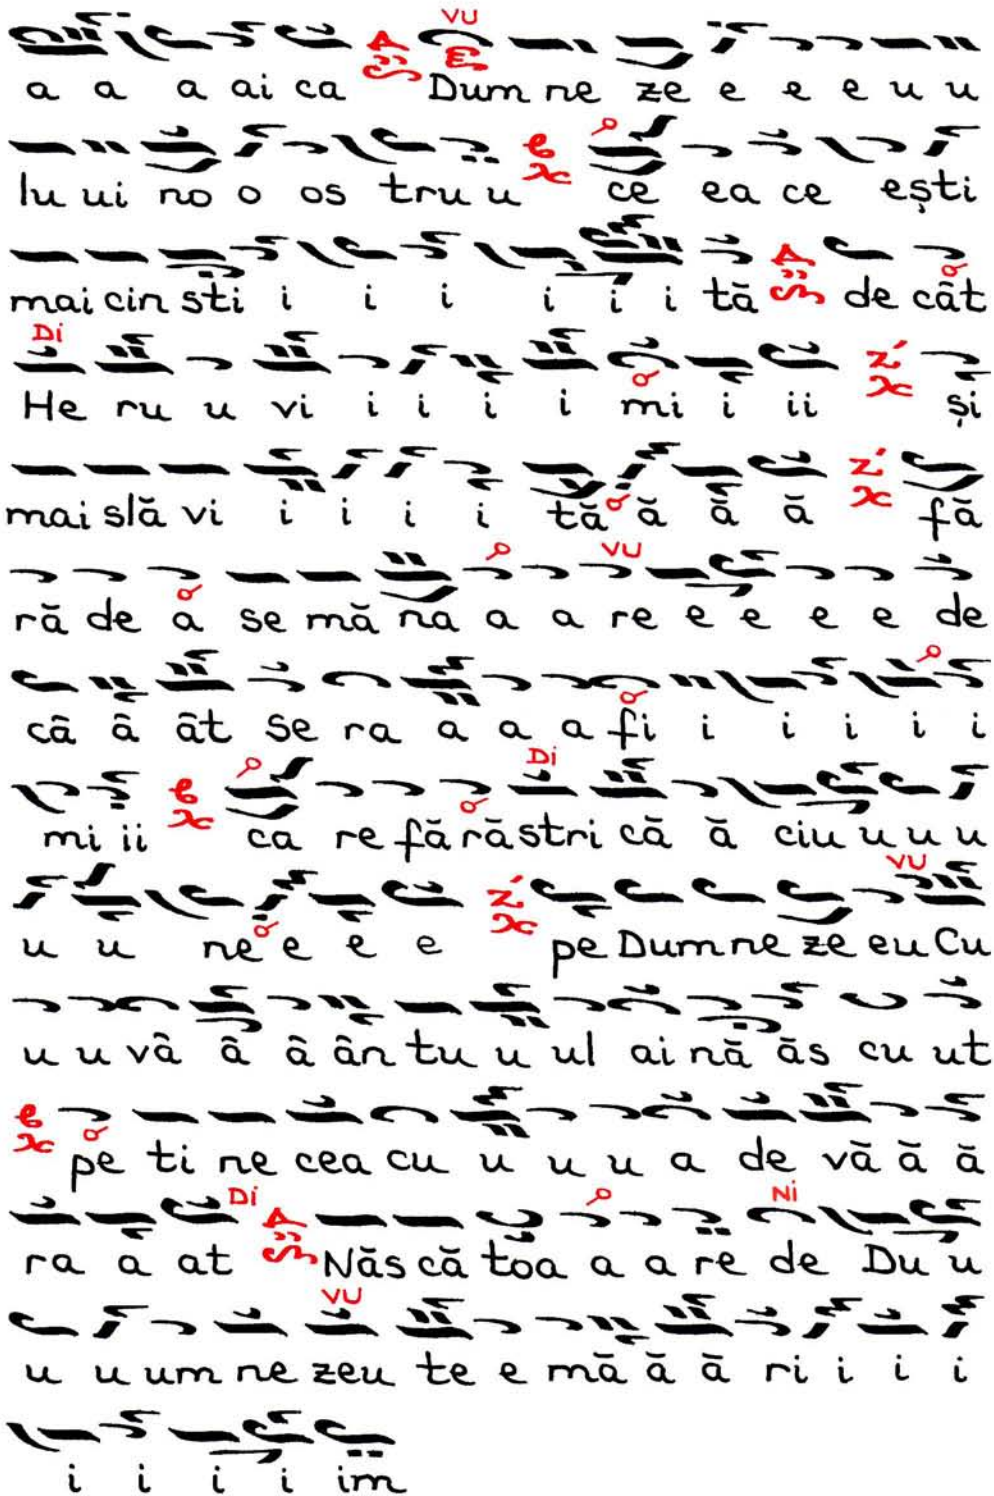 VU
a a a ai ca Dum ne ze e e e u u
lu ui no o os tru u ce ea ce ești
mai cin sti i i i i i i tă de cât
Di
He ru u vi i i i i mi i ii și
mai slă vi i i i i tă ă ă ă fă
VU
ră de a se mă na a a re e e e e de
câ â ât se ra a a a fi i i i i i
Di
mi ii ca re fă ră stri că ă ciu u u u
VU
u u ne e e e pe Dum ne ze eu Cu
u u vâ â â ân tu u ul ai nă ăs cu ut
pe ti ne cea cu u u u a de vă ă ă
Di Ni
ra a at Năs că toa a a re de Du u
VU
u u um ne zeu te e mă ă ă ri i i i
i i i i im